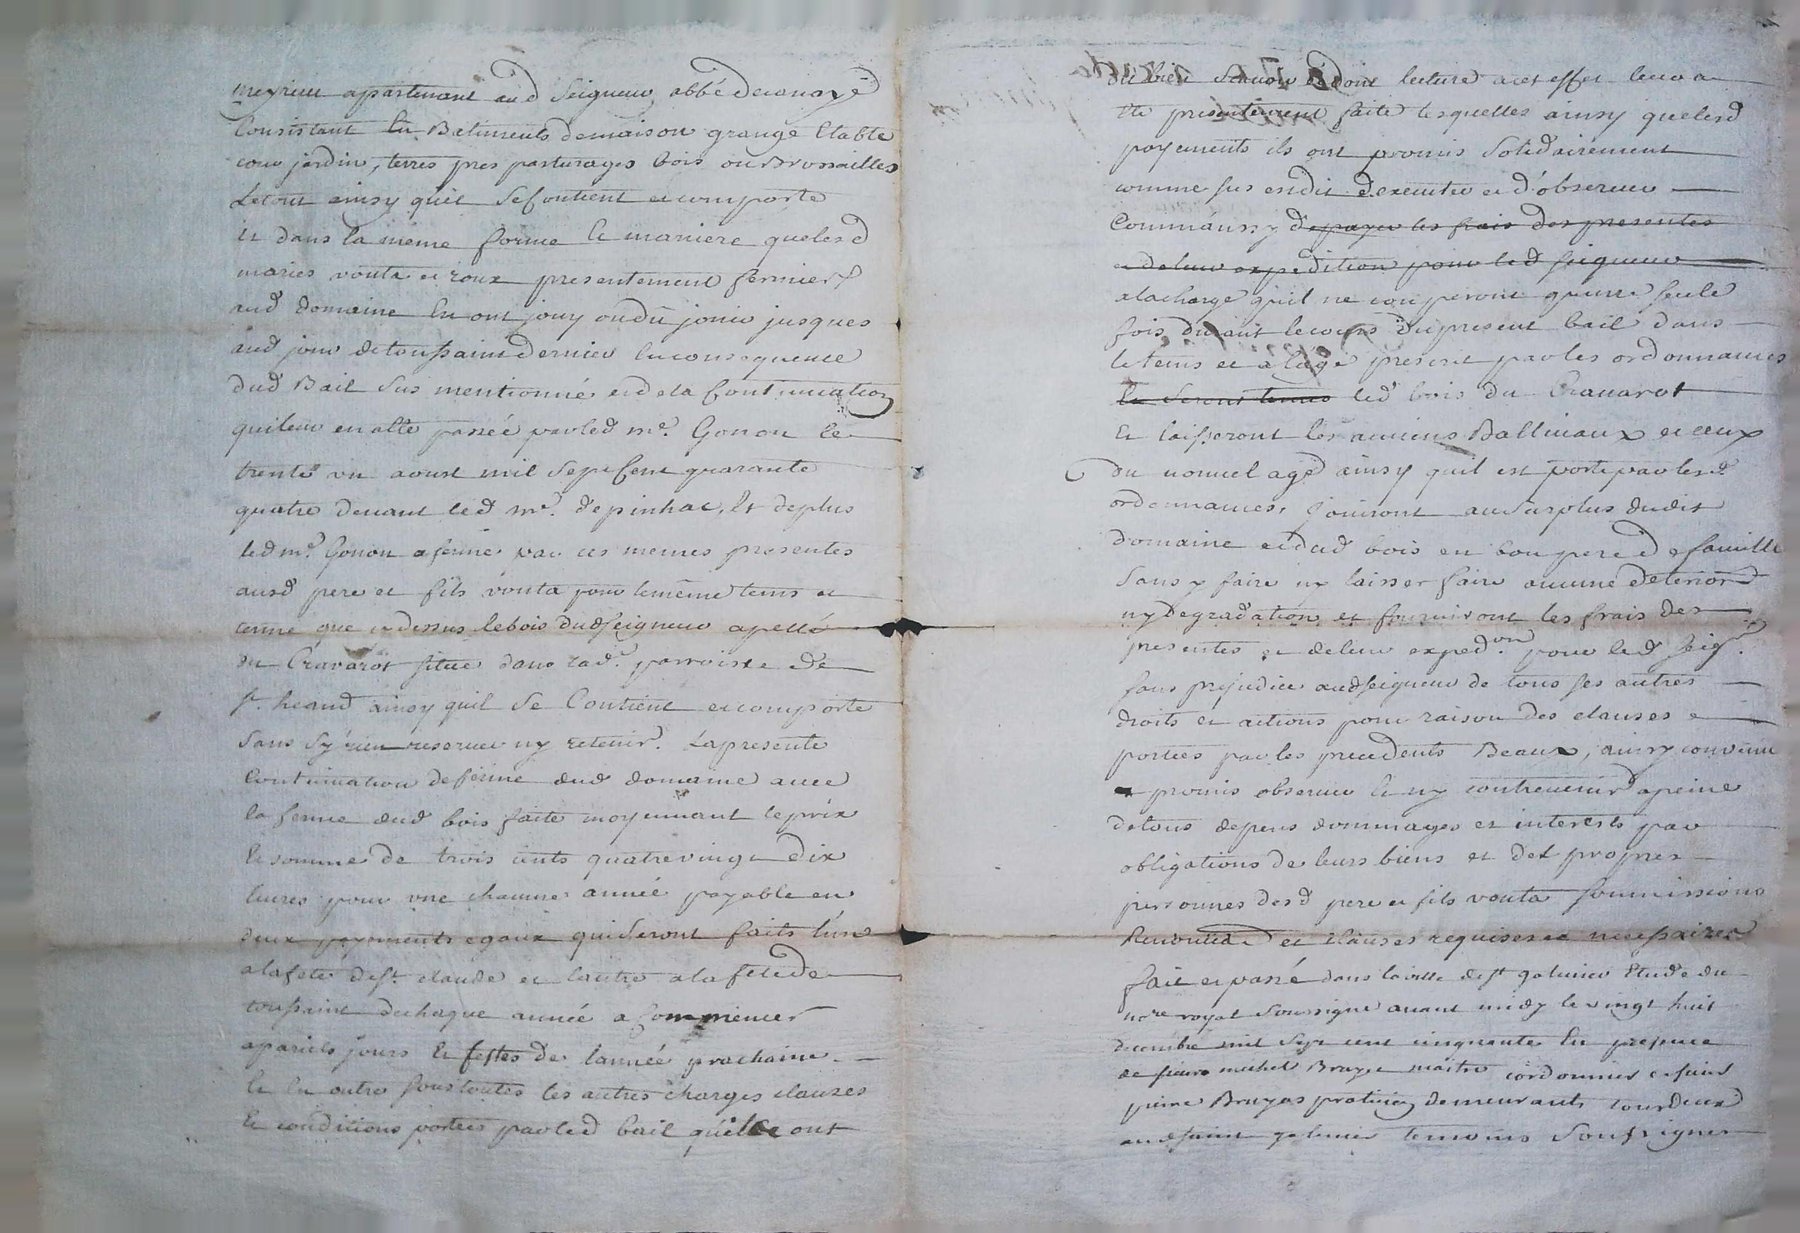 meyrieu apartenant aud Seigneur abbé
Consistant En Batiments de maison grange Etable
cour jardin, terres pres pasturages bois ou Brossailles
Letout ainsy quil Se Contient et comporte
Et dans la même forme Et maniere que lesd
maries vouta et roux presentement fermiers
aud domaine En ont jouy ou dû jouir jusques
aud jour de toussaint dernier En consequence
dud Bail sus mentionné et de la Continuation
qui leur en a été passée par led me. Gonon le
trente un aoust mil Sept Cent quarante
quatre devant led me. depinhac, Et de plus
led me. Gonon a fermé par ces memes presentes
ausd pere et fils vouta pour le même tems et
terme que cy dessus le bois dud seigneur apellé
du Cravarot situé dans lad. parroisse de
st. heand ainsy quil Se Contient et comporte
Sans Sy rien reserver ny retenir. La presente
Continuation de ferme dud domaine avec
la ferme dud bois faite moyennant le prix
Et somme de trois cents quatre vingt dix
livres pour une chacune année payable en
deux payements egaux qui Seront faits l'un
a la fete de st. claude et l'autre a la fete de
toussaint de chaque année a Commencer
a pariels jours Et festes de l'année prochaine
Et En outre sous toutes les autres charges clauses
Et conditions portées par led bail quils ont
dit bien Scavoir et dont lecture a cet effet leur a
été presentement faite lesquelles ainsy que lesd
payements ils ont promis Solidairement
comme sus est dit d'executer et d'observer
Comm'aussy de payer les frais des presentes
et de leur expedition pour led seigneur
a la charge quil ne couperont qu'une seule
fois durant le cours du present bail dans
le tems et a l'age prescrit par les ordonnances
Et Seront tenus led bois du Cravarot
Et laisseront les anciens Balliveaux et ceux
du nouvel age ainsy quil est porté par lesd.
ordonnances, Jouiront au Surplus dudit
domaine et dud bois en bon pere de famille
Sans y faire ny laisser faire aucune deteriord
ny Degradation et fourniront les frais des
presentes et de leur exped.on pour led Seigr.
sans prejudice aud seigneur de tous ses autres
droits et actions pour raison des clauses
portées par les precedents Beaux, ainsy convenu
et promis observer Et ny contrevenir a peine
de tous depens dommages et interests par
obligations de leurs biens et des propres
personnes desd pere et fils vouta soumissions
Renond et clauses requises et necessaires
fait et passé dans la ville de st galmier Etude du
nore royal soussigné avant midy le vingt huit
decembre mil Sept cent cinquante En presence
de sieurs michel Bruyas maître cordonnier et sieur
pierre Bruyas praticien demeurants tous deux
aud saint galmier temoins Soussignes